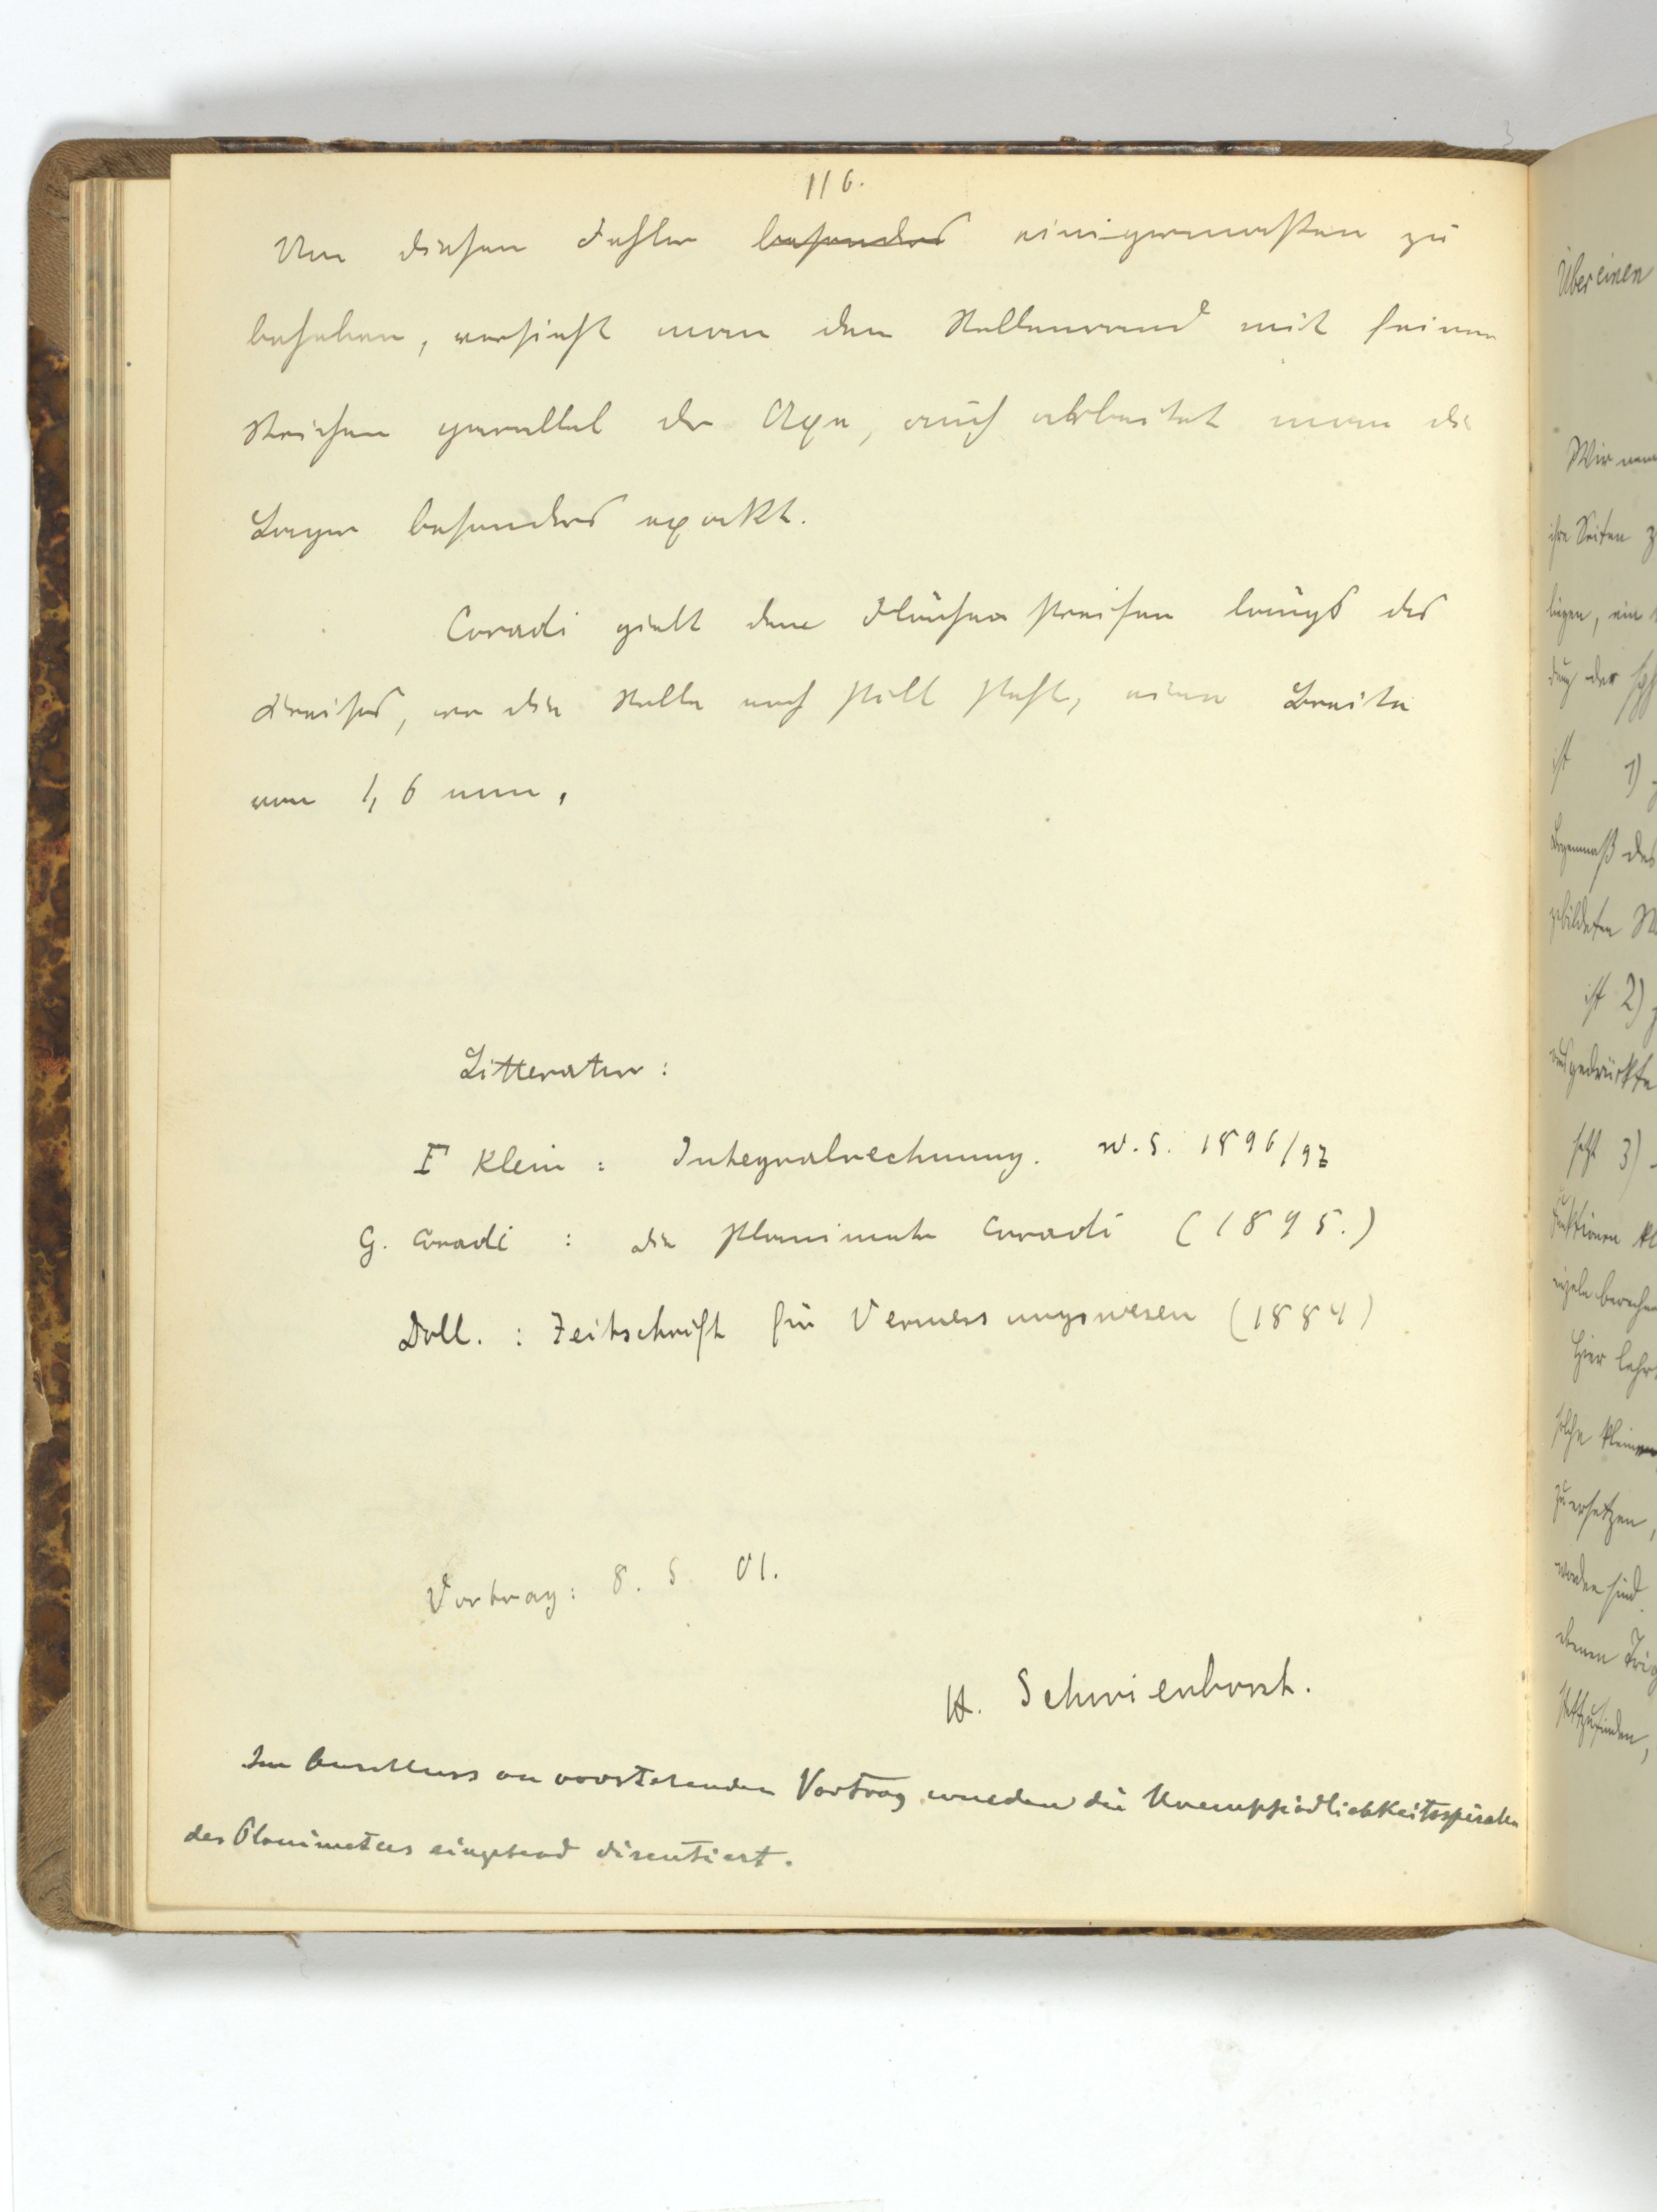 116.
Um diesen Fehler besonders einigermaßen zu
beheben, versieht man den Rollenrand mit feinen
Strichen parallel der Axe, auch arbeitet man die
Lager besonders exakt.
Coradi giebt dem Flächenstreifen längs des
Kreises, wo die Rolle noch still steht, eine Breite
von 1,6 mm.
Litteratur:
F Klein: Integralrechnung. W.S. 1896/97
G. Coradi: die Planimeter Coradi (1895.)
Doll.: Zeitschrift für Vermessungswesen (1884)
Vortrag: 8. 5. 01.
H. Schwienhorst.
Im Anschluss an vorstehenden Vortrag wurden die Unempfindlichkeitsspiralen
des Planimeters eingehend discutiert.
Über einen
Wir
ihre Seiten
ein
der
ist 1)
des
gebildeten
ist 2)
ausgedrückte
setzt 3)
Funktionen
berechne
Hier
solche
zu ersetzen,
worden sind.
ebenen
stattzufinden,